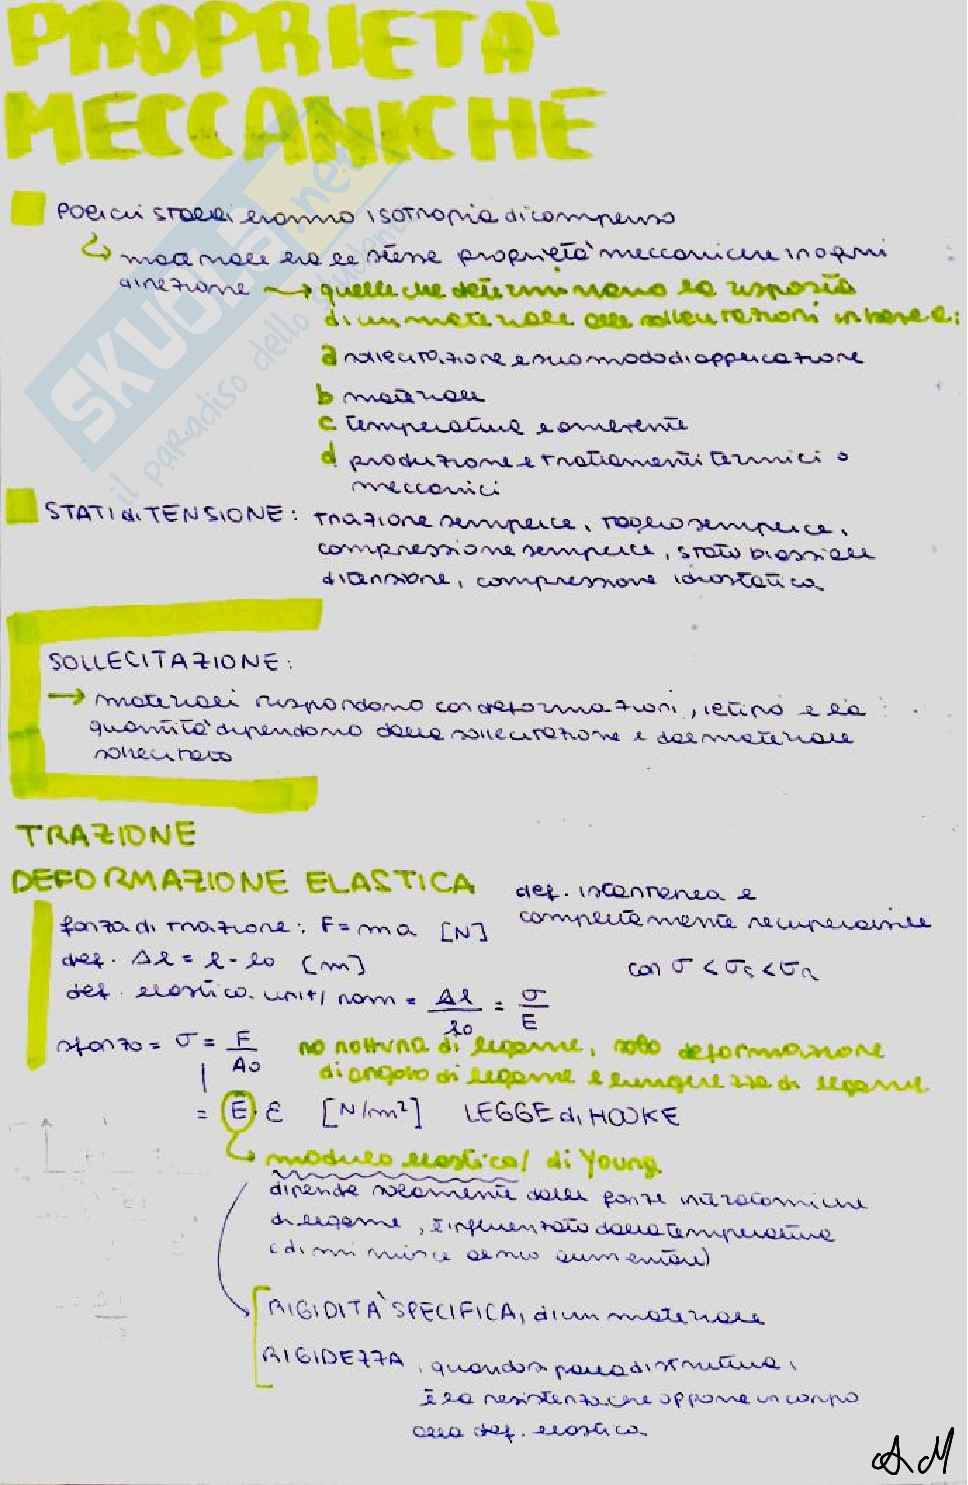 PROPRIETÀ
MECCANICHE
policristalli hanno isotropia di compenso
materiale ha le stesse proprietà meccaniche in ogni
direzione → quelle che determinano la risposta
di un materiale alle sollecitazioni in base a:
a sollecitazione e suo modo di applicazione
b materiale
c temperatura e ambiente
d produzione e trattamenti termici o
meccanici
STATI di TENSIONE: trazione semplice, taglio semplice,
compressione semplice, stato biassiale
di tensione, compressione idrostatica
SOLLECITAZIONE:
→ materiali rispondono con deformazioni, il tipo e la
quantità dipendono dalla sollecitazione e dal materiale
sollecitato
TRAZIONE
DEFORMAZIONE ELASTICA
def. istantanea e
completamente recuperabile
forza di trazione: F = ma [N]
def. Δl = l - l0 [m]
con σ < σs < σR
def. elastica unit/nom = Δl/l0 = σ/E
sforzo = σ = F/A0
no rottura di legame, solo deformazione
di angolo di legame e lunghezza di legame
= E · ε [N/m²] LEGGE di HOOKE
modulo elastico/ di Young
dipende solamente dalle forze interatomiche
di legame, è influenzato dalla temperatura
(diminuisce al suo aumentare)
RIGIDITÀ SPECIFICA, di un materiale
RIGIDEZZA, quando si parla di struttura,
è la resistenza che oppone un corpo
alla def. elastica.
AM
SKUOLA.net
il paradiso dello studente